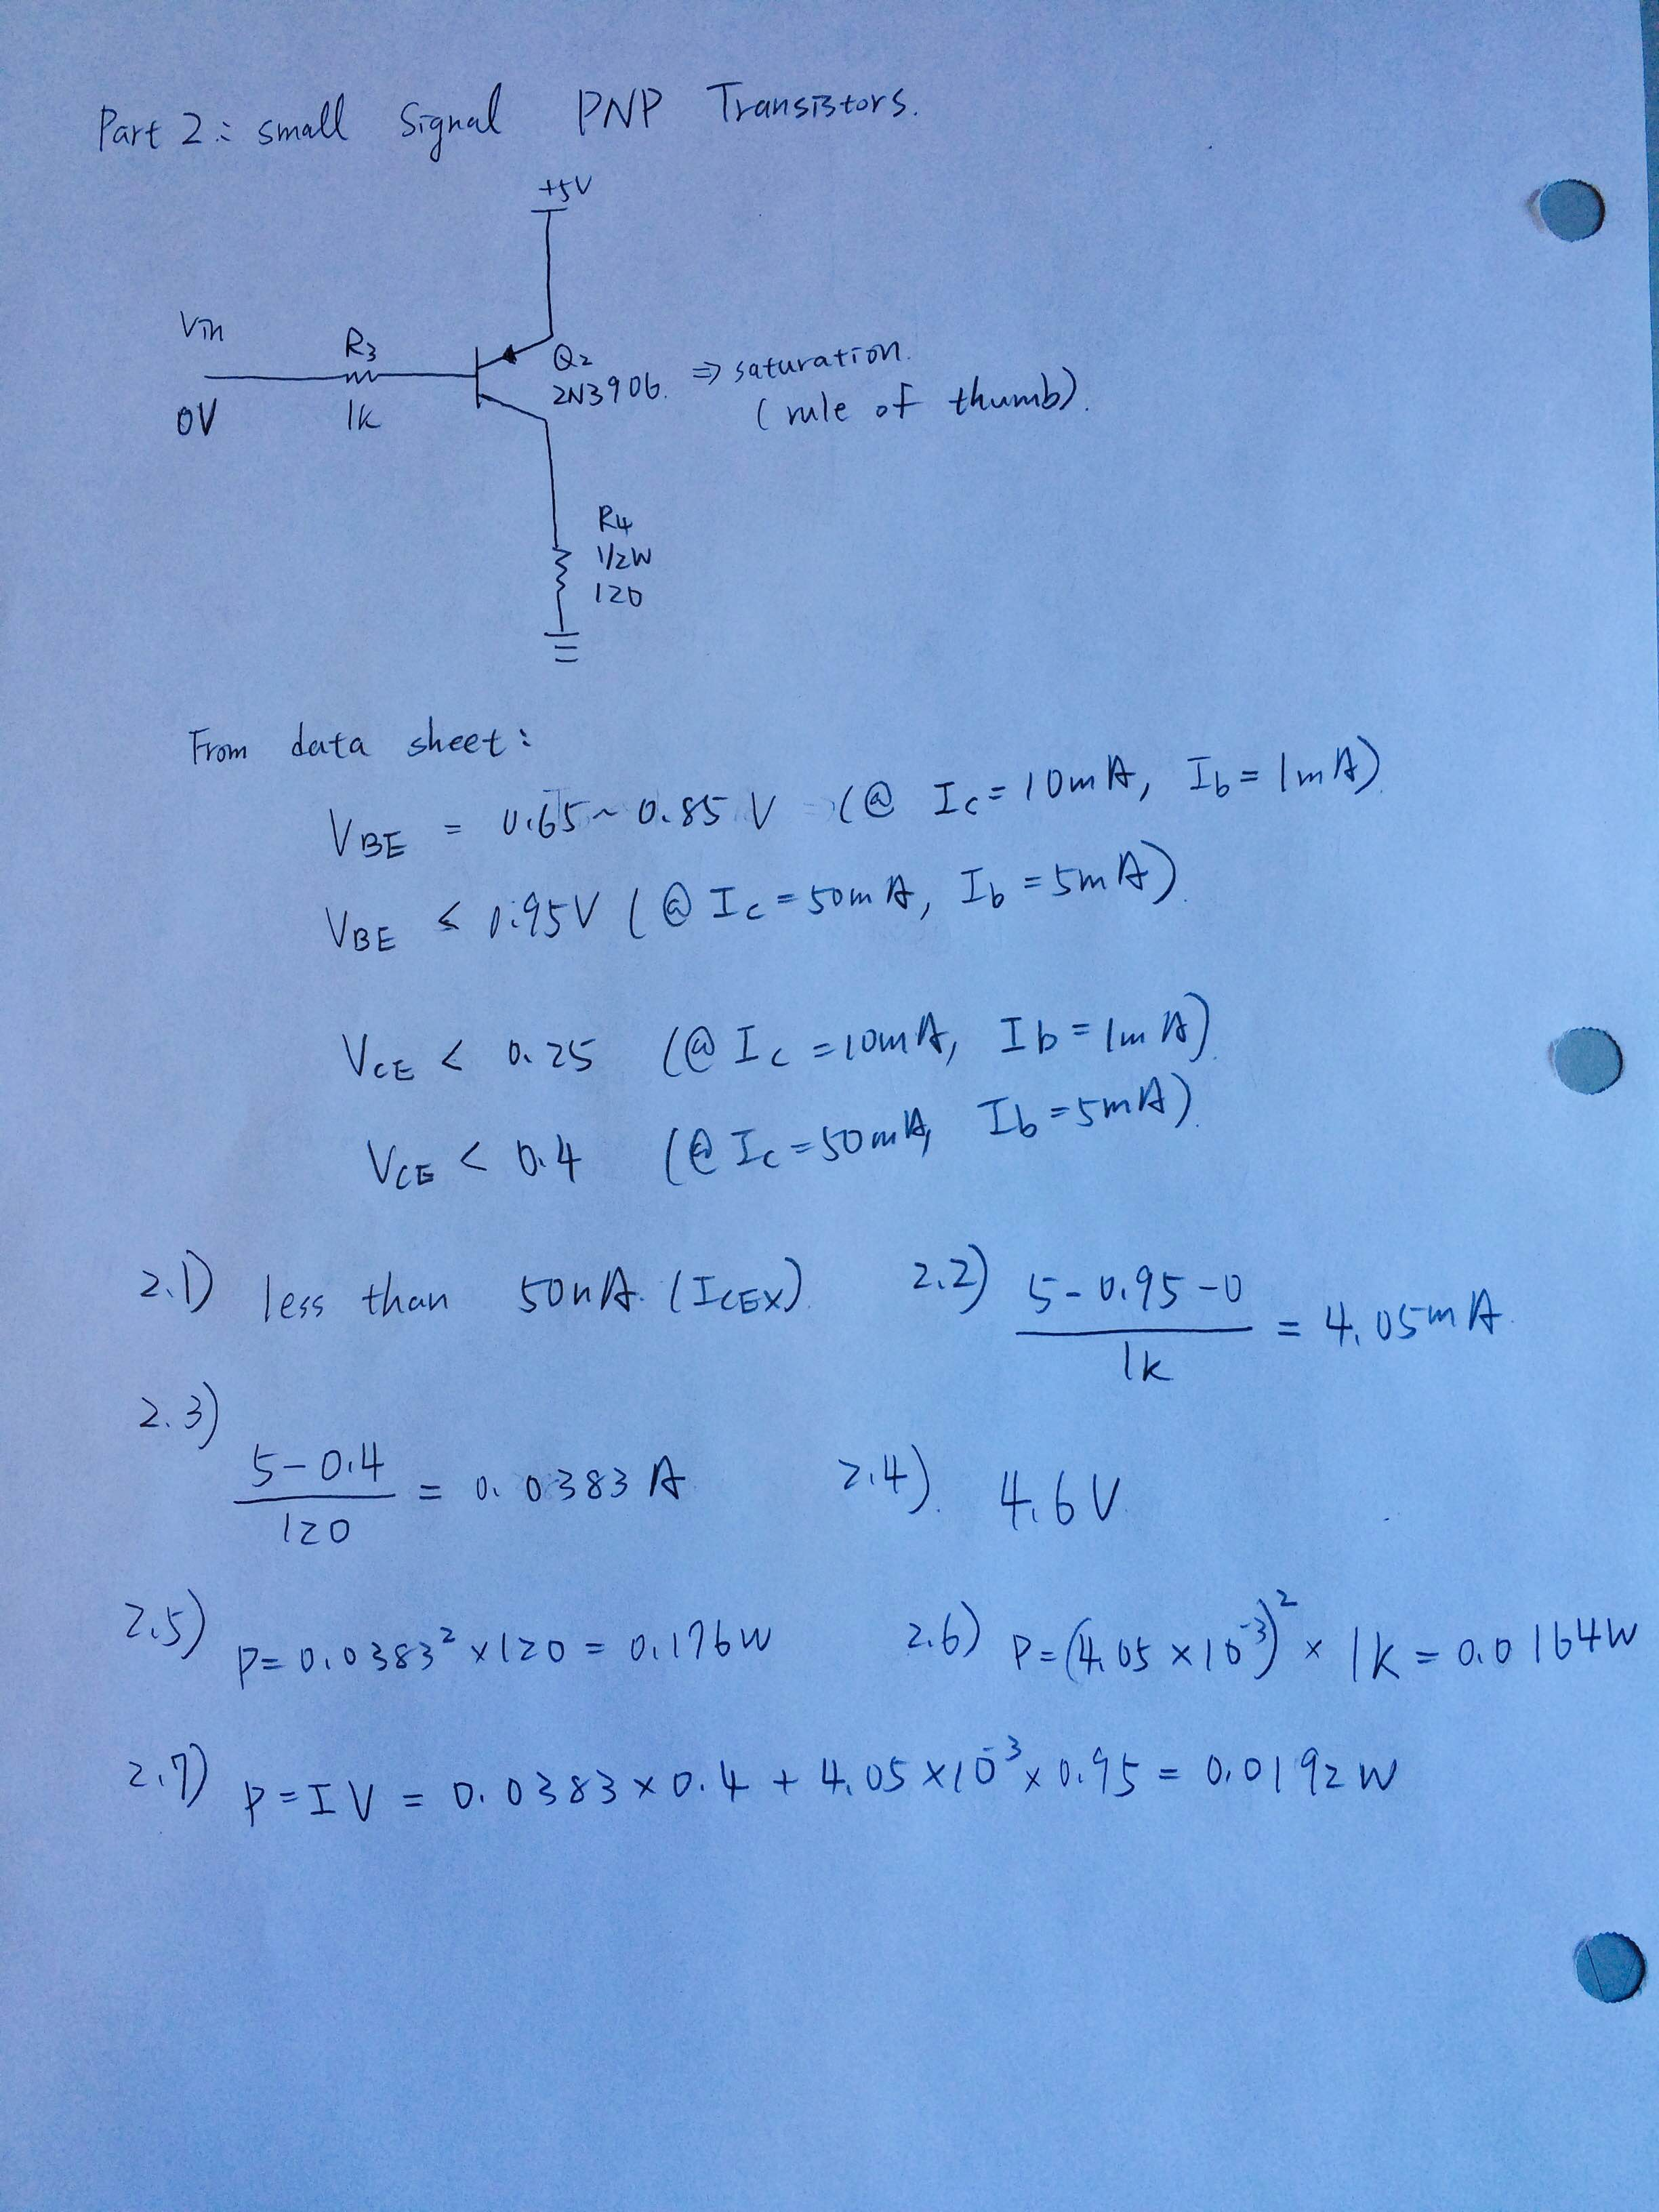 Part 2: small Signal PNP Transistors.
+5V
Vin
R3
Q2
2N3906. ⇒ saturation.
(rule of thumb).
0V
1k
R4
1/2W
120
From data sheet:
VBE = 0.65 ~ 0.85 V (@ Ic = 10mA, Ib = 1mA)
VBE ≤ 0.95V (@ Ic = 50mA, Ib = 5mA).
VCE < 0.25 (@ Ic = 10mA, Ib = 1mA).
VCE < 0.4 (@ Ic = 50mA, Ib = 5mA).
2.1) less than 50nA. (ICEX).
2.2) (5 - 0.95 - 0) / 1k = 4.05mA.
2.3) (5 - 0.4) / 120 = 0.0383 A
2.4). 4.6V.
2.5) P = 0.0383² × 120 = 0.176W
2.6) P = (4.05 × 10⁻³)² × 1k = 0.0164W
2.7) P = IV = 0.0383 × 0.4 + 4.05 × 10⁻³ × 0.95 = 0.0192W